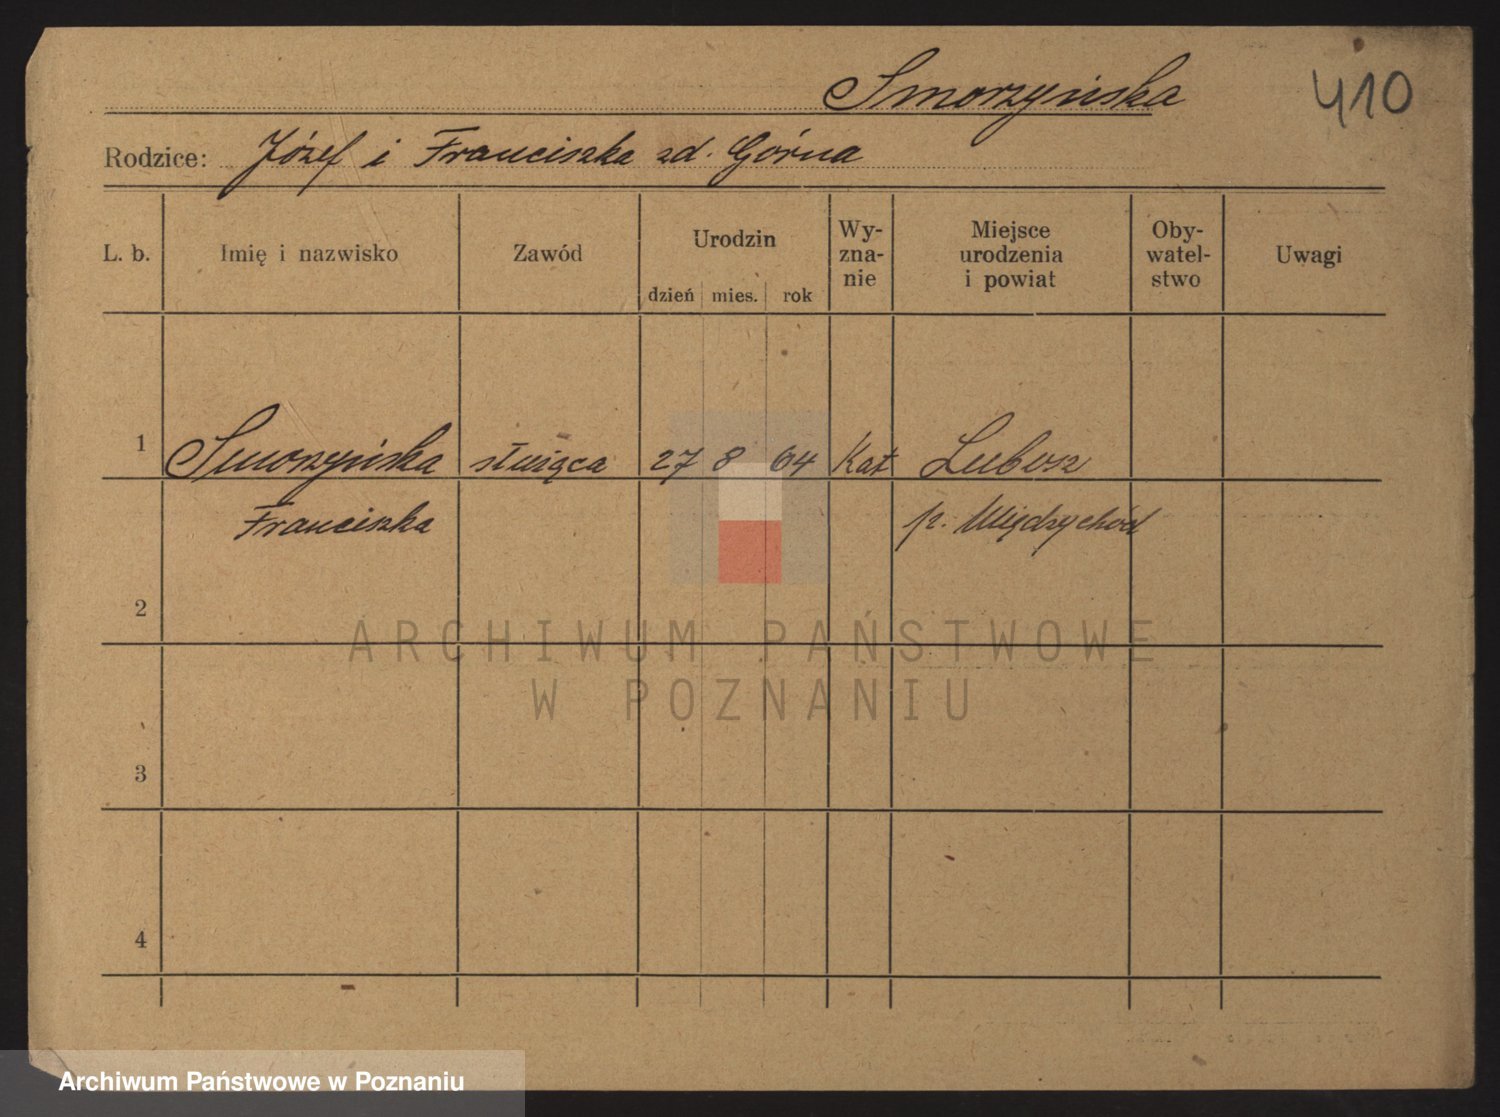 Smorzyńska
410
Rodzice: Józef i Franciszka zd. Górna
L. b.
Imię i nazwisko
Zawód
Urodzin
dzień mies. rok
Wy-
zna-
nie
Miejsce
urodzenia
i powiat
Oby-
watel-
stwo
Uwagi
1 Smorzyńska służąca 27 8 64 Kat Lubosz
Franciszka p. Międzychód
2
ARCHIWUM PAŃSTWOWE
W POZNANIU
3
4
Archiwum Państwowe w Poznaniu